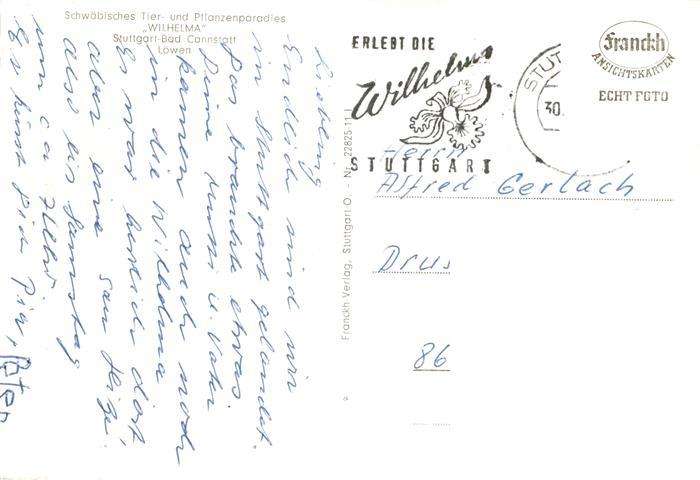 Schwäbisches Tier- und Pflanzenparadies
„WILHELMA"
Stuttgart-Bad Cannstatt
Löwen
Liebling
Endlich sind wir
in Stuttgart gelandet.
Das brauchte etwas
Deine Mutti u. Vater
kamen auch noch
in die Wilhelma
Es war herrlich dort
aber eine Hitze!
also bis Samstag
von ca
Es küsst Dich
Franckh-Verlag, Stuttgart O. - Nr. 22825 11
ERLEBT DIE
Wilhelma
STUTTGART
STUT
30.
Franckh
ANSICHTSKARTEN
ECHT FOTO
Herrn
Alfred Gerlach
Drus
86